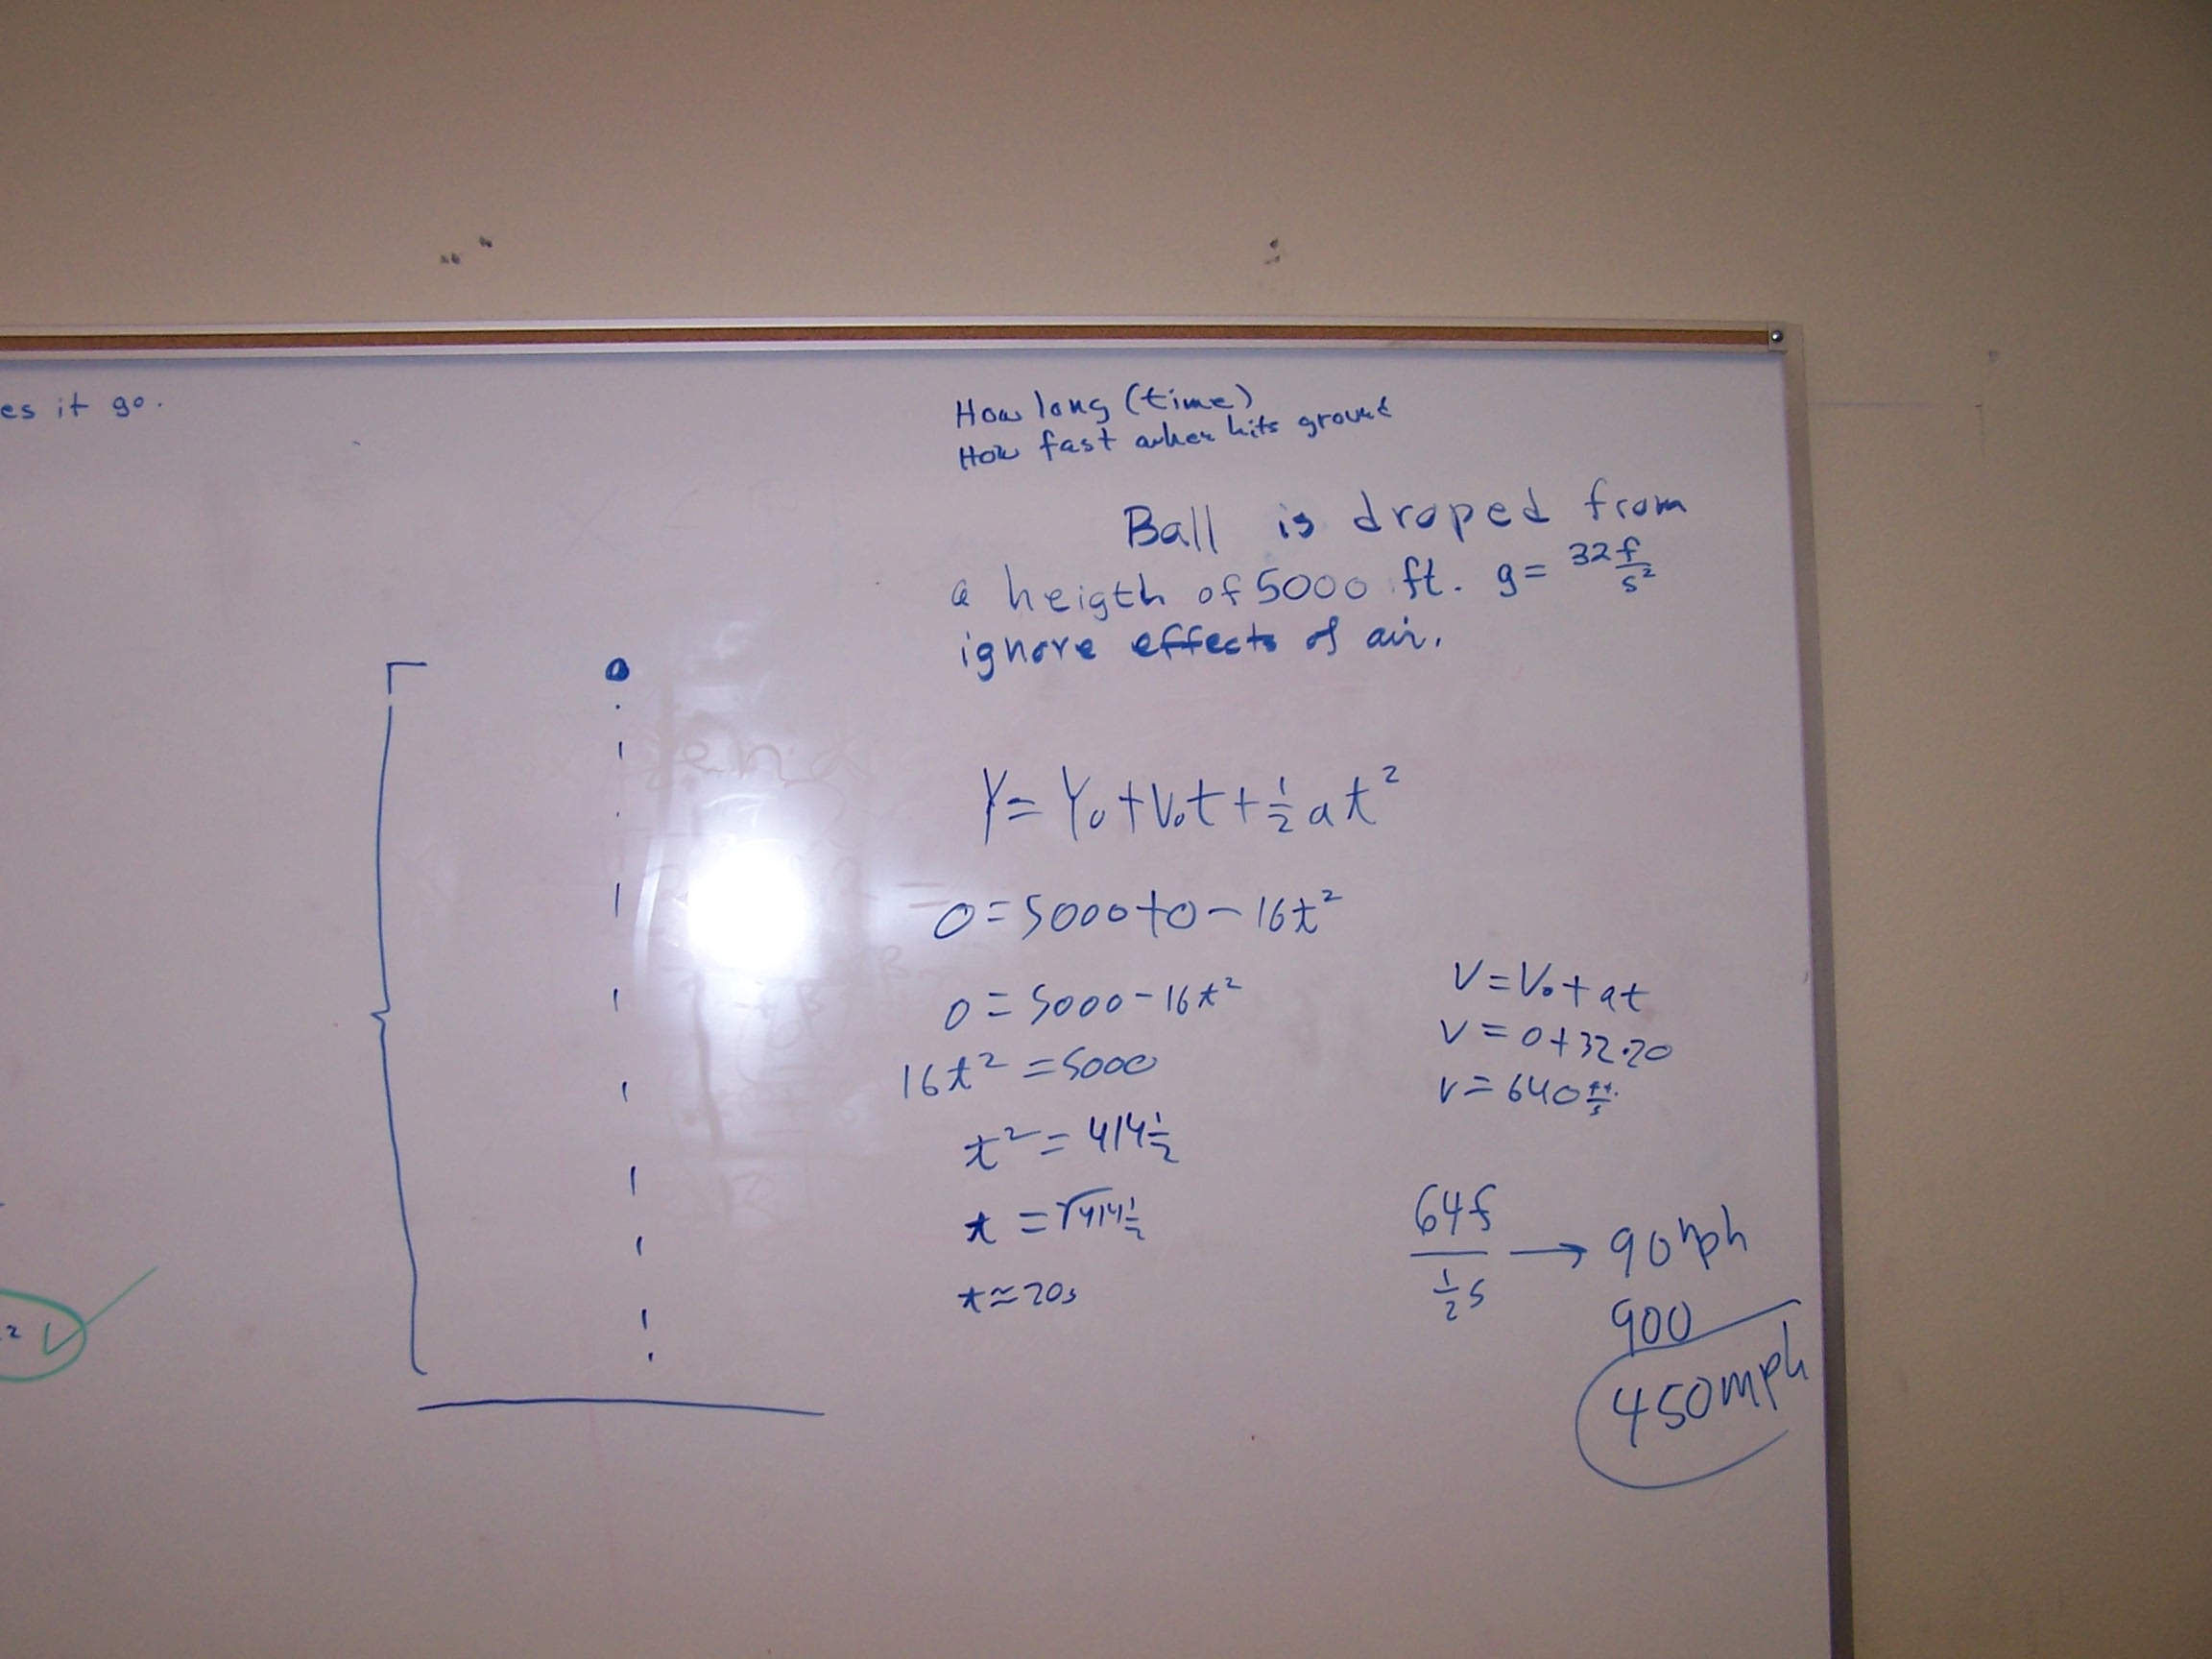 es it go.
How long (time)
How fast when hits ground
Ball is droped from
a heigth of 5000 ft. g= 32 f/s²
ignore effects of air.
Y= Y₀+V₀t+½at²
0=5000+0-16t²
0=5000-16t²
16t²=5000
t²=414½
t=√414½
t≈20s
V=V₀+at
V=0+32·20
V=640 ft./s
64f/½s → 90mph
900
450mph
2